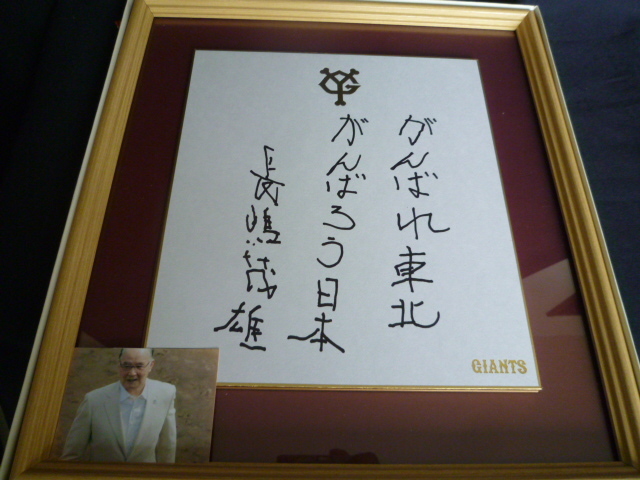 がんばれ東北
がんばろう日本
長嶋茂雄
GIANTS